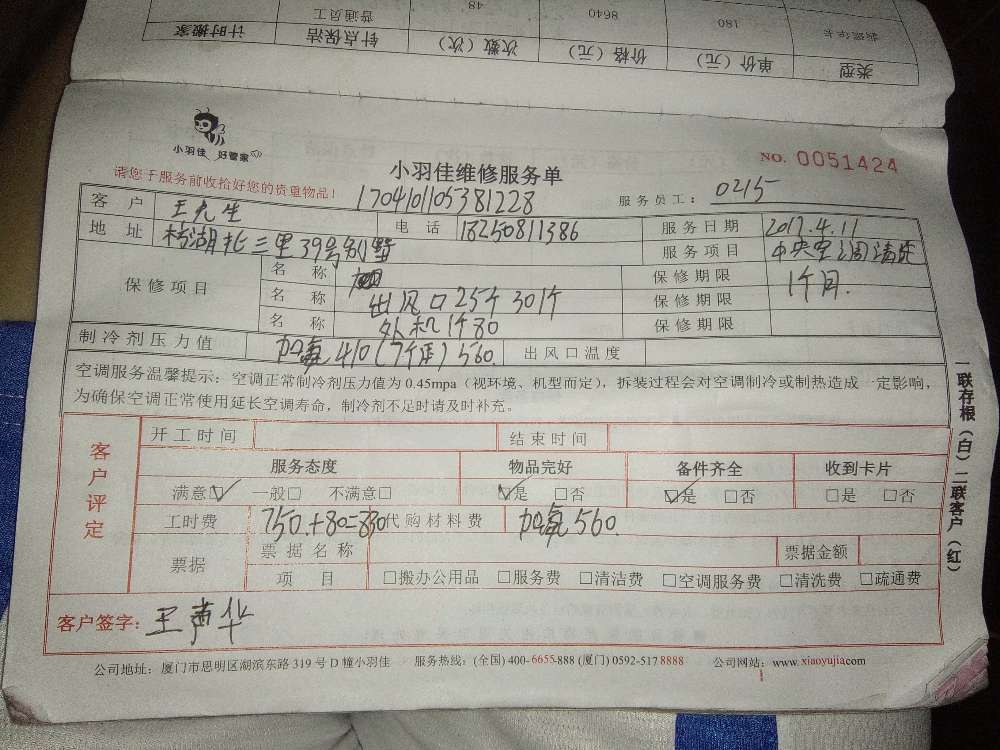 类型 单价（元） 价格（元） 次数（次） 针点保洁 计时搬家
180 8640 48 普通员工
小羽佳 好管家
小羽佳维修服务单
NO. 0051424
请您于服务前收拾好您的贵重物品！
1704101105381228
服务员工： 0215
客户 王先生 电话 18250811386 服务日期 2017.4.11
地址 三里39号别墅 服务项目 中央空调清洗
保修项目 名称 保修期限 1个月.
名称 出风口25个 30/个 保修期限
名称 外机1个80 保修期限
制冷剂压力值 加氟410(7个压)560. 出风口温度
空调服务温馨提示：空调正常制冷剂压力值为 0.45mpa（视环境、机型而定），拆装过程会对空调制冷或制热造成一定影响，
为确保空调正常使用延长空调寿命，制冷剂不足时请及时补充。
客户评定
开工时间 结束时间
服务态度 物品完好 备件齐全 收到卡片
满意☑ 一般□ 不满意□ ☑是 □否 ☑是 □否 □是 □否
工时费 750.+80=830 代购材料费 加氟560.
票据 票据名称 票据金额
项目 □搬办公用品 □服务费 □清洁费 □空调服务费 □清洗费 □疏通费
客户签字： 王声华
一联存根（白）二联客户（红）
公司地址：厦门市思明区湖滨东路 319 号 D 幢小羽佳 服务热线：(全国) 400-6655-888 (厦门) 0592-517 8888 公司网站：www.xiaoyujia.com